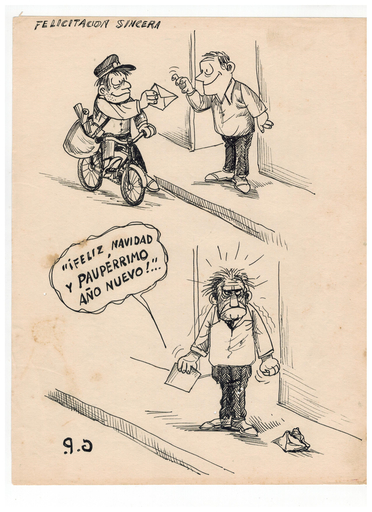 FELICITACION SINCERA
"¡FELIZ NAVIDAD
Y PAUPÉRRIMO
AÑO NUEVO!"...